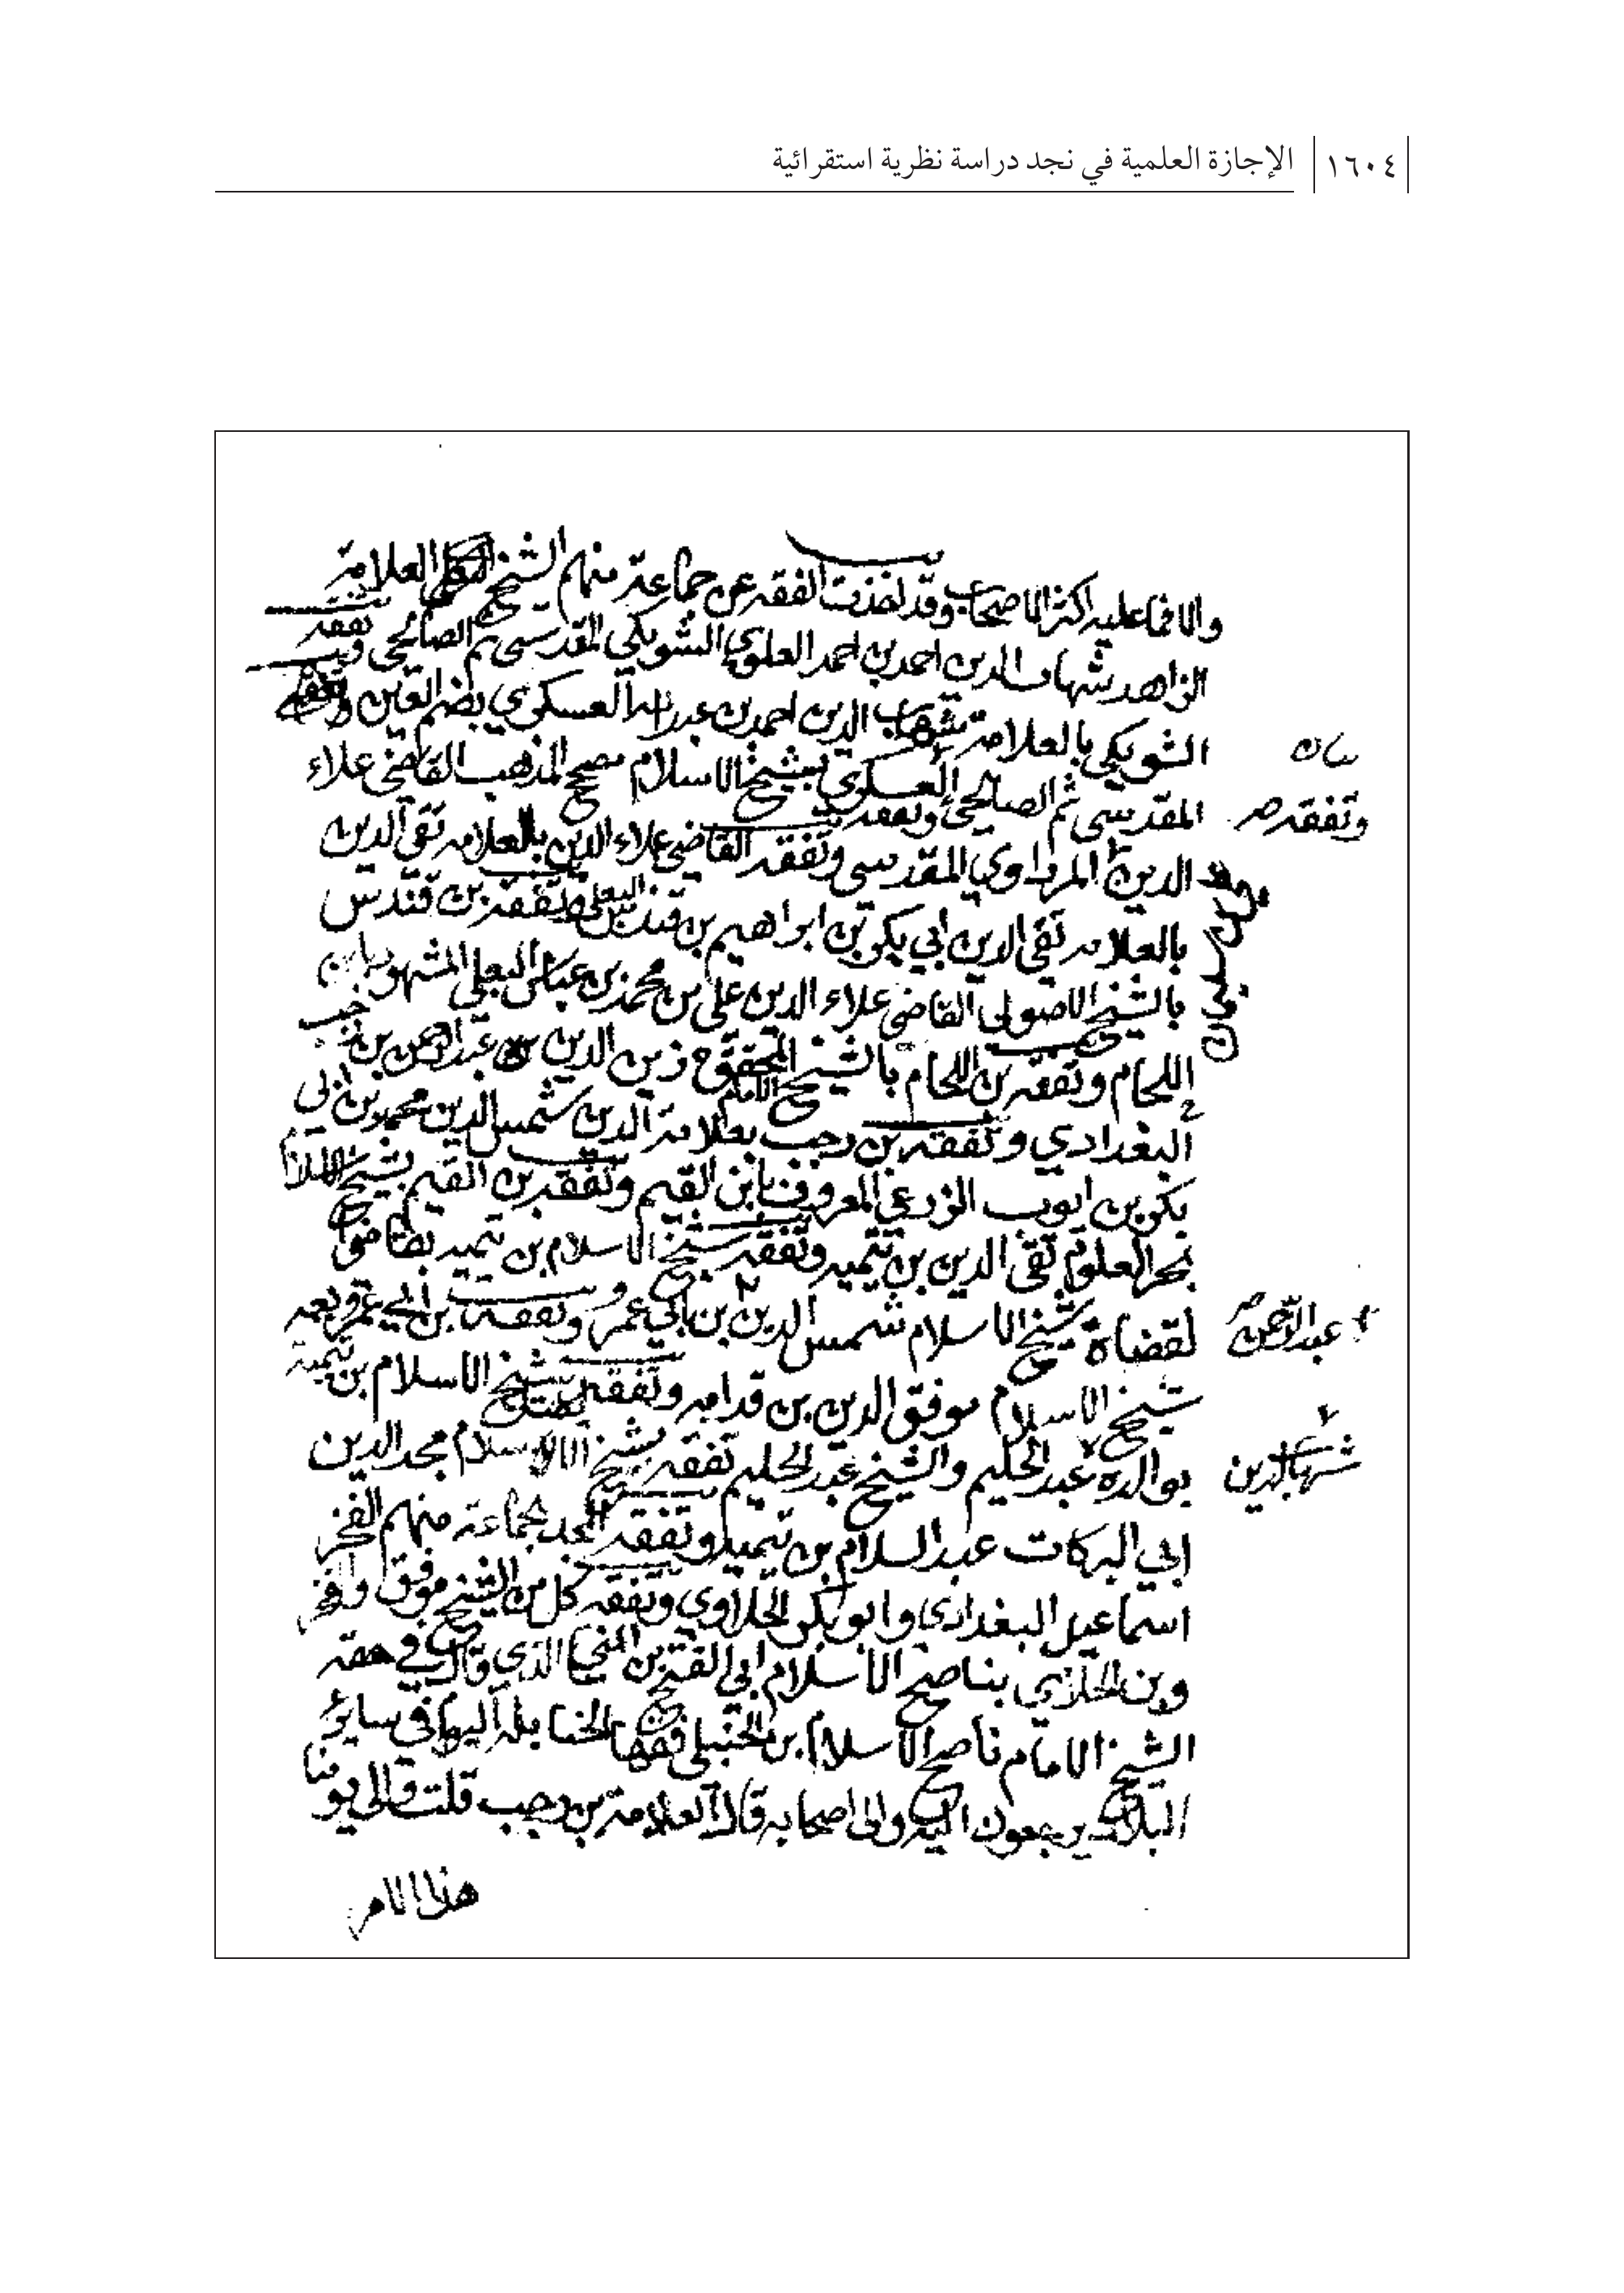 ١٦٠٤ الإجازة العلمية في نجد دراسة نظرية استقرائية
والا فما عليه اكثر الاصحاب وقد اخذت الفقه عن جماعة منهم الشيخ العلامة
الزاهد شهاب الدين احمد بن احمد العلوي الشويكي المقدسي ثم الصالحي وتفقه
الشويكي بالعلامة شهاب الدين احمد بن عبد الله العسكري بضم العين
المقدسي ثم الصالحي وتفقه العسكري بشيخ الاسلام مصحح المذهب القاضي علاء
وتفقه صح
الدين المرداوي المقدسي وتفقه القاضي علاء الدين بالعلامه تقي الدين
بالعلامه تقي الدين ابي بكر بن ابراهيم بن قندس البعلي وتفقه بن قندس
بالشيخ الاصولي القاضي علاء الدين علي بن محمد بن عباس البعلي المشهور بابن
اللحام وتفقه بن اللحام بالشيخ الامام المحقق زين الدين عبد الرحمن بن رجب
البغدادي وتفقه بن رجب بعلامة الدين شمس الدين محمد بن ابي
بكر بن ايوب الزرعي المعروف بابن القيم وتفقه بن القيم بشيخ الاسلام
بحر العلوم تقي الدين بن تيميه وتفقه شيخ الاسلام بن تيميه بقاضي
لقضاة شيخ الاسلام شمس الدين بن ابي عمر وتفقه بن ابي عمر بعمه
عبد الرحمن صح
شيخ الاسلام موفق الدين بن قدامه وتفقه شيخ الاسلام بن تيمية
بوالده عبد الحليم والشيخ عبد الحليم تفقه بشيخ الاسلام مجد الدين
شهاب الدين
ابي البركات عبد السلام بن تيميه وتفقه المجد بجماعة منهم الفخر
اسماعيل البغدادي وابو بكر الحلاوي وتفقه كل من الشيخ موفق والفخر
وبن الحلاوي بناصح الاسلام ابي الفتح بن المني الذي قال في حقه
الشيخ الامام ناصح الاسلام بن الحنبلي فقهاء الحنابله اليوم في سائر
البلاد يرجعون اليه والى اصحابه قال العلامة بن رجب قلت والى يومنا
هذا الامر